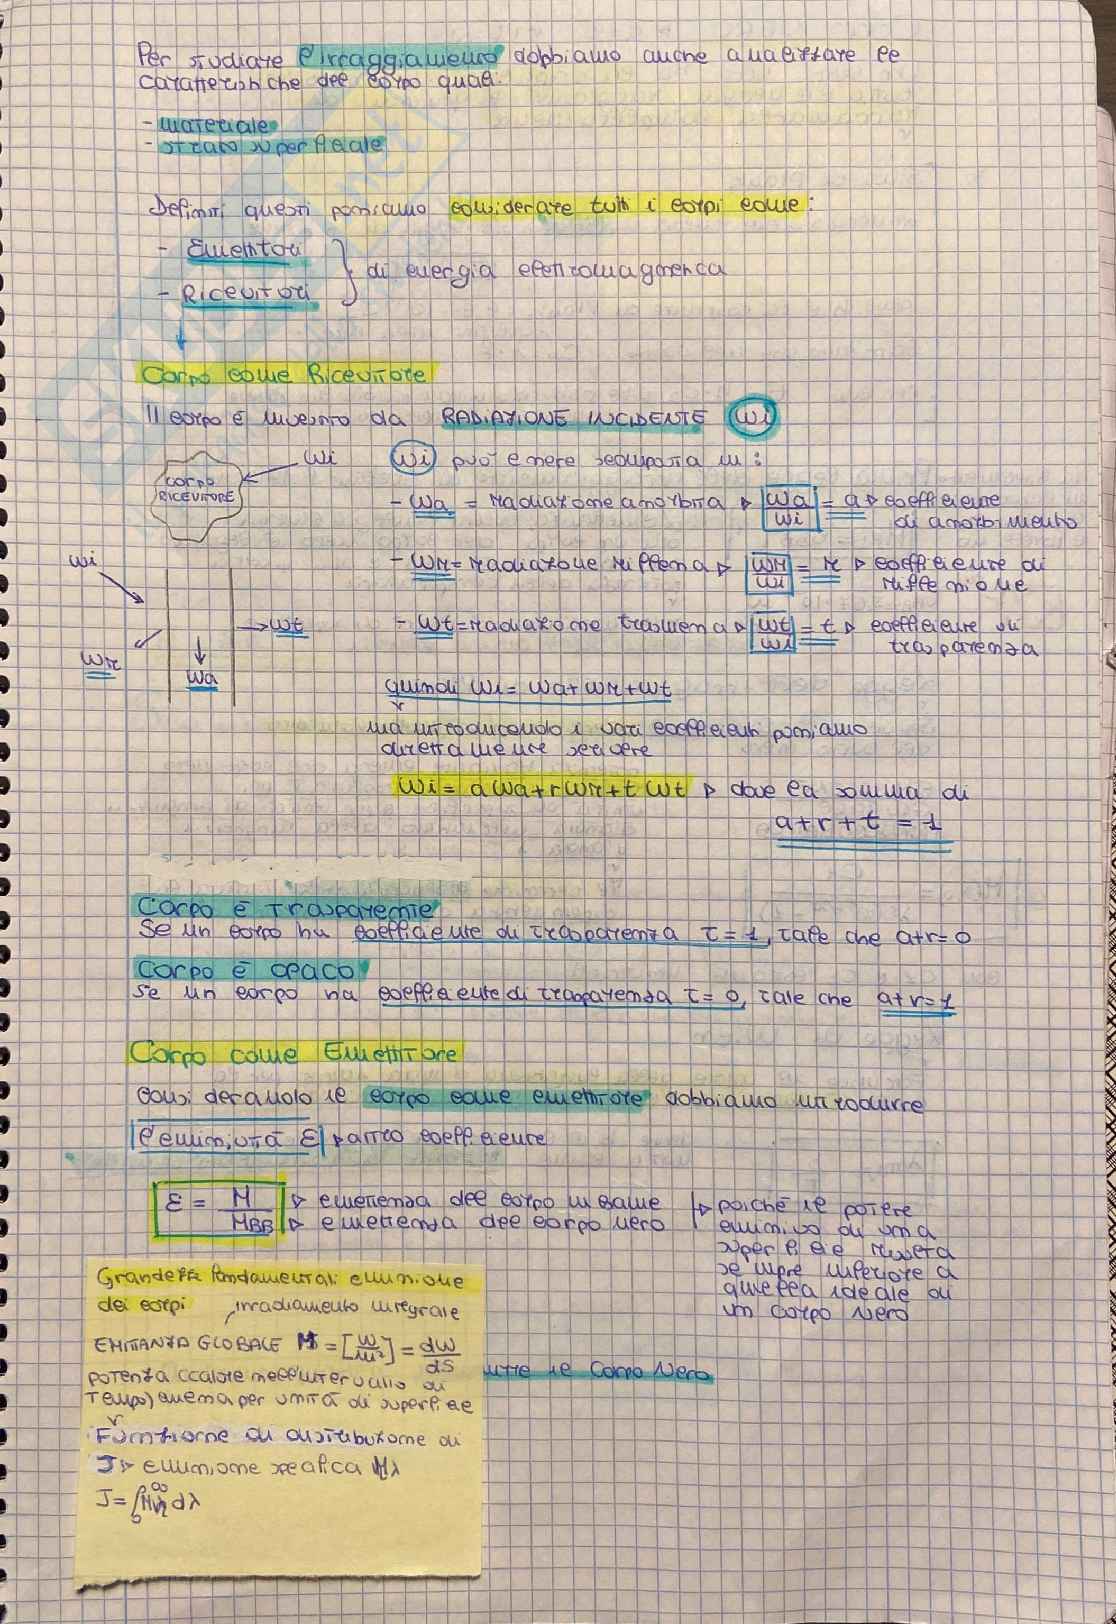 Per studiare l'irraggiamento dobbiamo anche analizzare le
caratteristiche del corpo quali:
- materiale
- strato superficiale
Definiti questi possiamo considerare tutti i corpi come:
- Emettitori
- Ricevitori
di energia elettromagnetica
Corpo come Ricevitore
Il corpo è investito da RADIAZIONE INCIDENTE Wi
corpo RICEVITORE
Wi
Wi può essere scomposta in:
- Wa = radiazione assorbita ▷ Wa/Wi = a ▷ coefficiente
di assorbimento
- Wr = radiazione riflessa ▷ Wr/Wi = r ▷ coefficiente di
riflessione
- Wt = radiazione trasmessa ▷ Wt/Wi = t ▷ coefficiente di
trasparenza
Wi
Wr
Wa
→ Wt
quindi Wi = Wa + Wr + Wt
ma introducendo i vari coefficienti possiamo
direttamente scrivere
Wi = a Wa + r Wr + t Wt ▷ dove la somma di
a + r + t = 1
Corpo è Trasparente
Se un corpo ha coefficiente di trasparenza τ = 1, tale che a+r= 0
Corpo è opaco
Se un corpo ha coefficiente di trasparenza τ = 0, tale che a+r=1
Corpo come Emettitore
Considerando il corpo come emettitore dobbiamo introdurre
l'emissività ε ▷ altro coefficiente
ε = M/MBB
▷ emettenza del corpo in esame
▷ emettenza del corpo nero
▷ poiché il potere
emissivo di una
superficie risulta
sempre inferiore a
quella ideale di
un corpo nero
Grandezze fondamentali emissione
dei corpi
irradiamento integrale
EMITTANZA GLOBALE M = [W/m²] = dW/dS
potenza (calore nell'intervallo di
tempo) emessa per unità di superficie
Funzione di distribuzione di
J ▷ emissione specifica Mλ
J = ∫₀^∞ Mλ dλ
il Corpo Nero